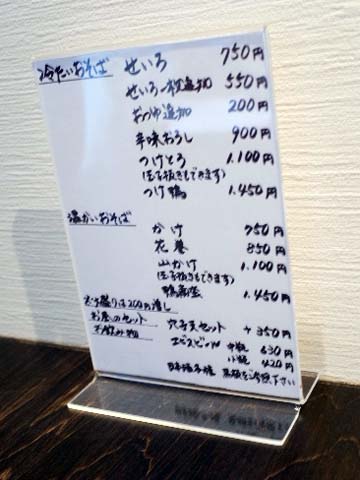 冷たいおそば せいろ 750円
せいろ一枚追加 550円
おつゆ追加 200円
辛味おろし 900円
つけとろ 1.100円
(玉子抜きもできます)
つけ鴨 1.450円
温かいおそば
かけ 750円
花巻 850円
山かけ 1.100円
(玉子抜きもできます)
鴨南蛮 1.450円
大盛りは200円増し
お昼のセット 穴子天セット +350円
お飲み物 ヱビスビール 中瓶 630円
小瓶 420円
日本酒各種 黒板をご参照下さい